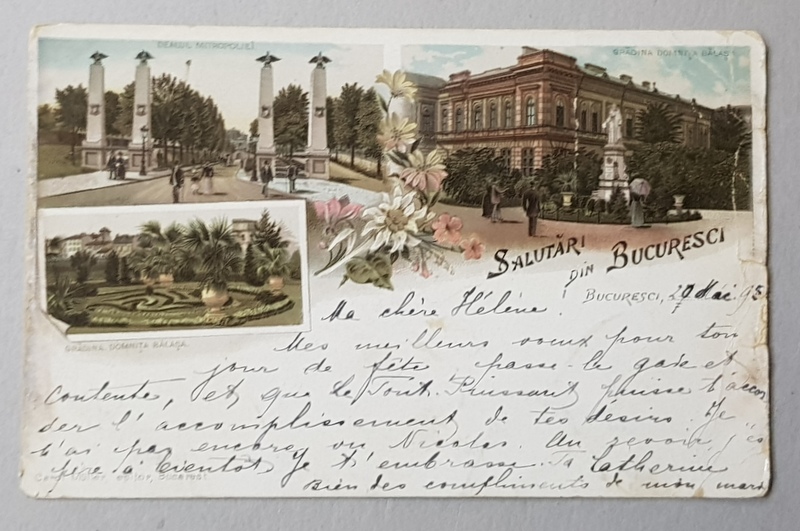 DEALUL MITROPOLIEI
GRĂDINA DOMNIȚA BĂLAȘA
GRĂDINA DOMNIȚA BĂLAȘA
SALUTĂRI DIN BUCURESCI
BUCURESCI, Mai 98
Ma chère Hélène!
Mes meilleurs voeux pour ton
jour de fête, passe-le gaie et
contente, et que le Tout-Puissant puisse t'accor
der l'accomplissement de tes désirs. Je
t'ai pas encore vu Nicolas. Au revoir j'es
père à bientot Je t'embrasse. Ta Catherine
Bien des compliments de mon mari